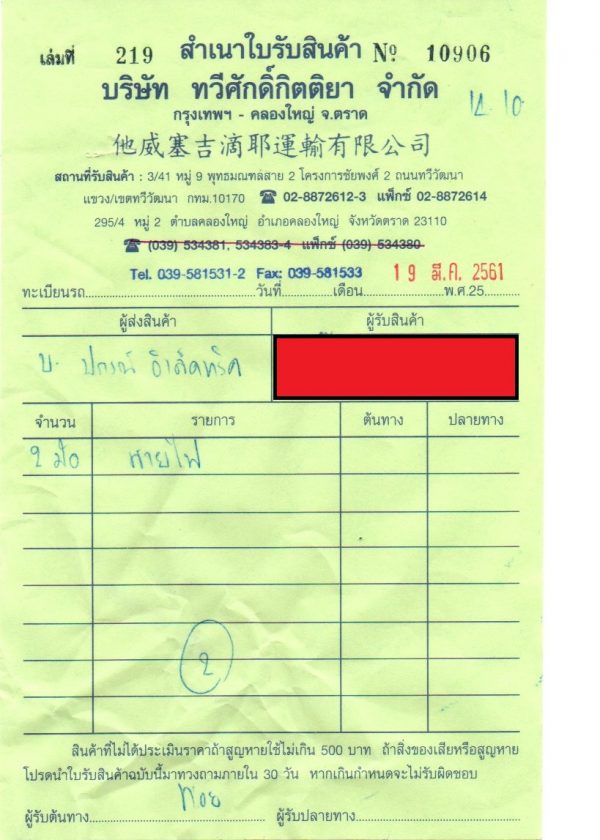 เล่มที่ 219 สำเนาใบรับสินค้า Nº 10906
บริษัท ทวีศักดิ์กิตติยา จำกัด
กรุงเทพฯ - คลองใหญ่ จ.ตราด
14.10
他威塞吉滴耶運輸有限公司
สถานที่รับสินค้า : 3/41 หมู่ 9 พุทธมณฑลสาย 2 โครงการชัยพงศ์ 2 ถนนทวีวัฒนา
แขวง/เขตทวีวัฒนา กทม.10170 ☎ 02-8872612-3 แฟ็กซ์ 02-8872614
295/4 หมู่ 2 ตำบลคลองใหญ่ อำเภอคลองใหญ่ จังหวัดตราด 23110
☎ (039) 534381, 534383-4 แฟ็กซ์ (039) 534380
Tel. 039-581531-2 Fax: 039-581533 19 มี.ค. 2561
ทะเบียนรถ วันที่ เดือน พ.ศ.25
ผู้ส่งสินค้า ผู้รับสินค้า
บ. ปกรณ์ อิเล็คทริค
จำนวน รายการ ต้นทาง ปลายทาง
2 มัด สายไฟ
2
สินค้าที่ไม่ได้ประเมินราคาถ้าสูญหายใช้ไม่เกิน 500 บาท ถ้าสิ่งของเสียหรือสูญหาย
โปรดนำใบรับสินค้าฉบับนี้มาทวงถามภายใน 30 วัน หากเกินกำหนดจะไม่รับผิดชอบ
ผู้รับต้นทาง ผู้รับปลายทาง